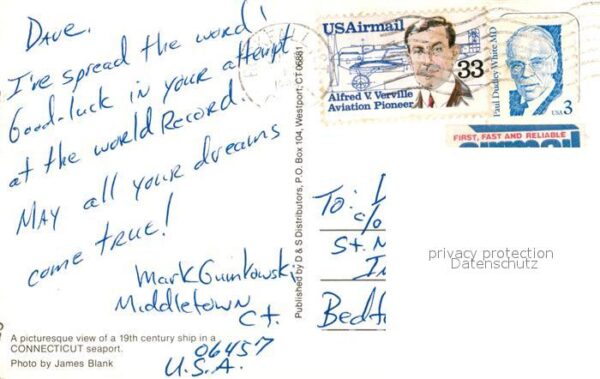 Dave,
I've spread the word!
Good-luck in your attempt
at the world Record.
May all your dreams
come true!
Mark
Middletown
Ct.
06457
U.S.A.
A picturesque view of a 19th century ship in a
CONNECTICUT seaport.
Photo by James Blank
Published by D & S Distributors, P.O. Box 104, Westport, CT 06881
USAirmail
33
Alfred V. Verville
Aviation Pioneer
Paul Dudley White MD
USA 3
FIRST, FAST AND RELIABLE
airmail
To:
c/o
St.
privacy protection
Datenschutz